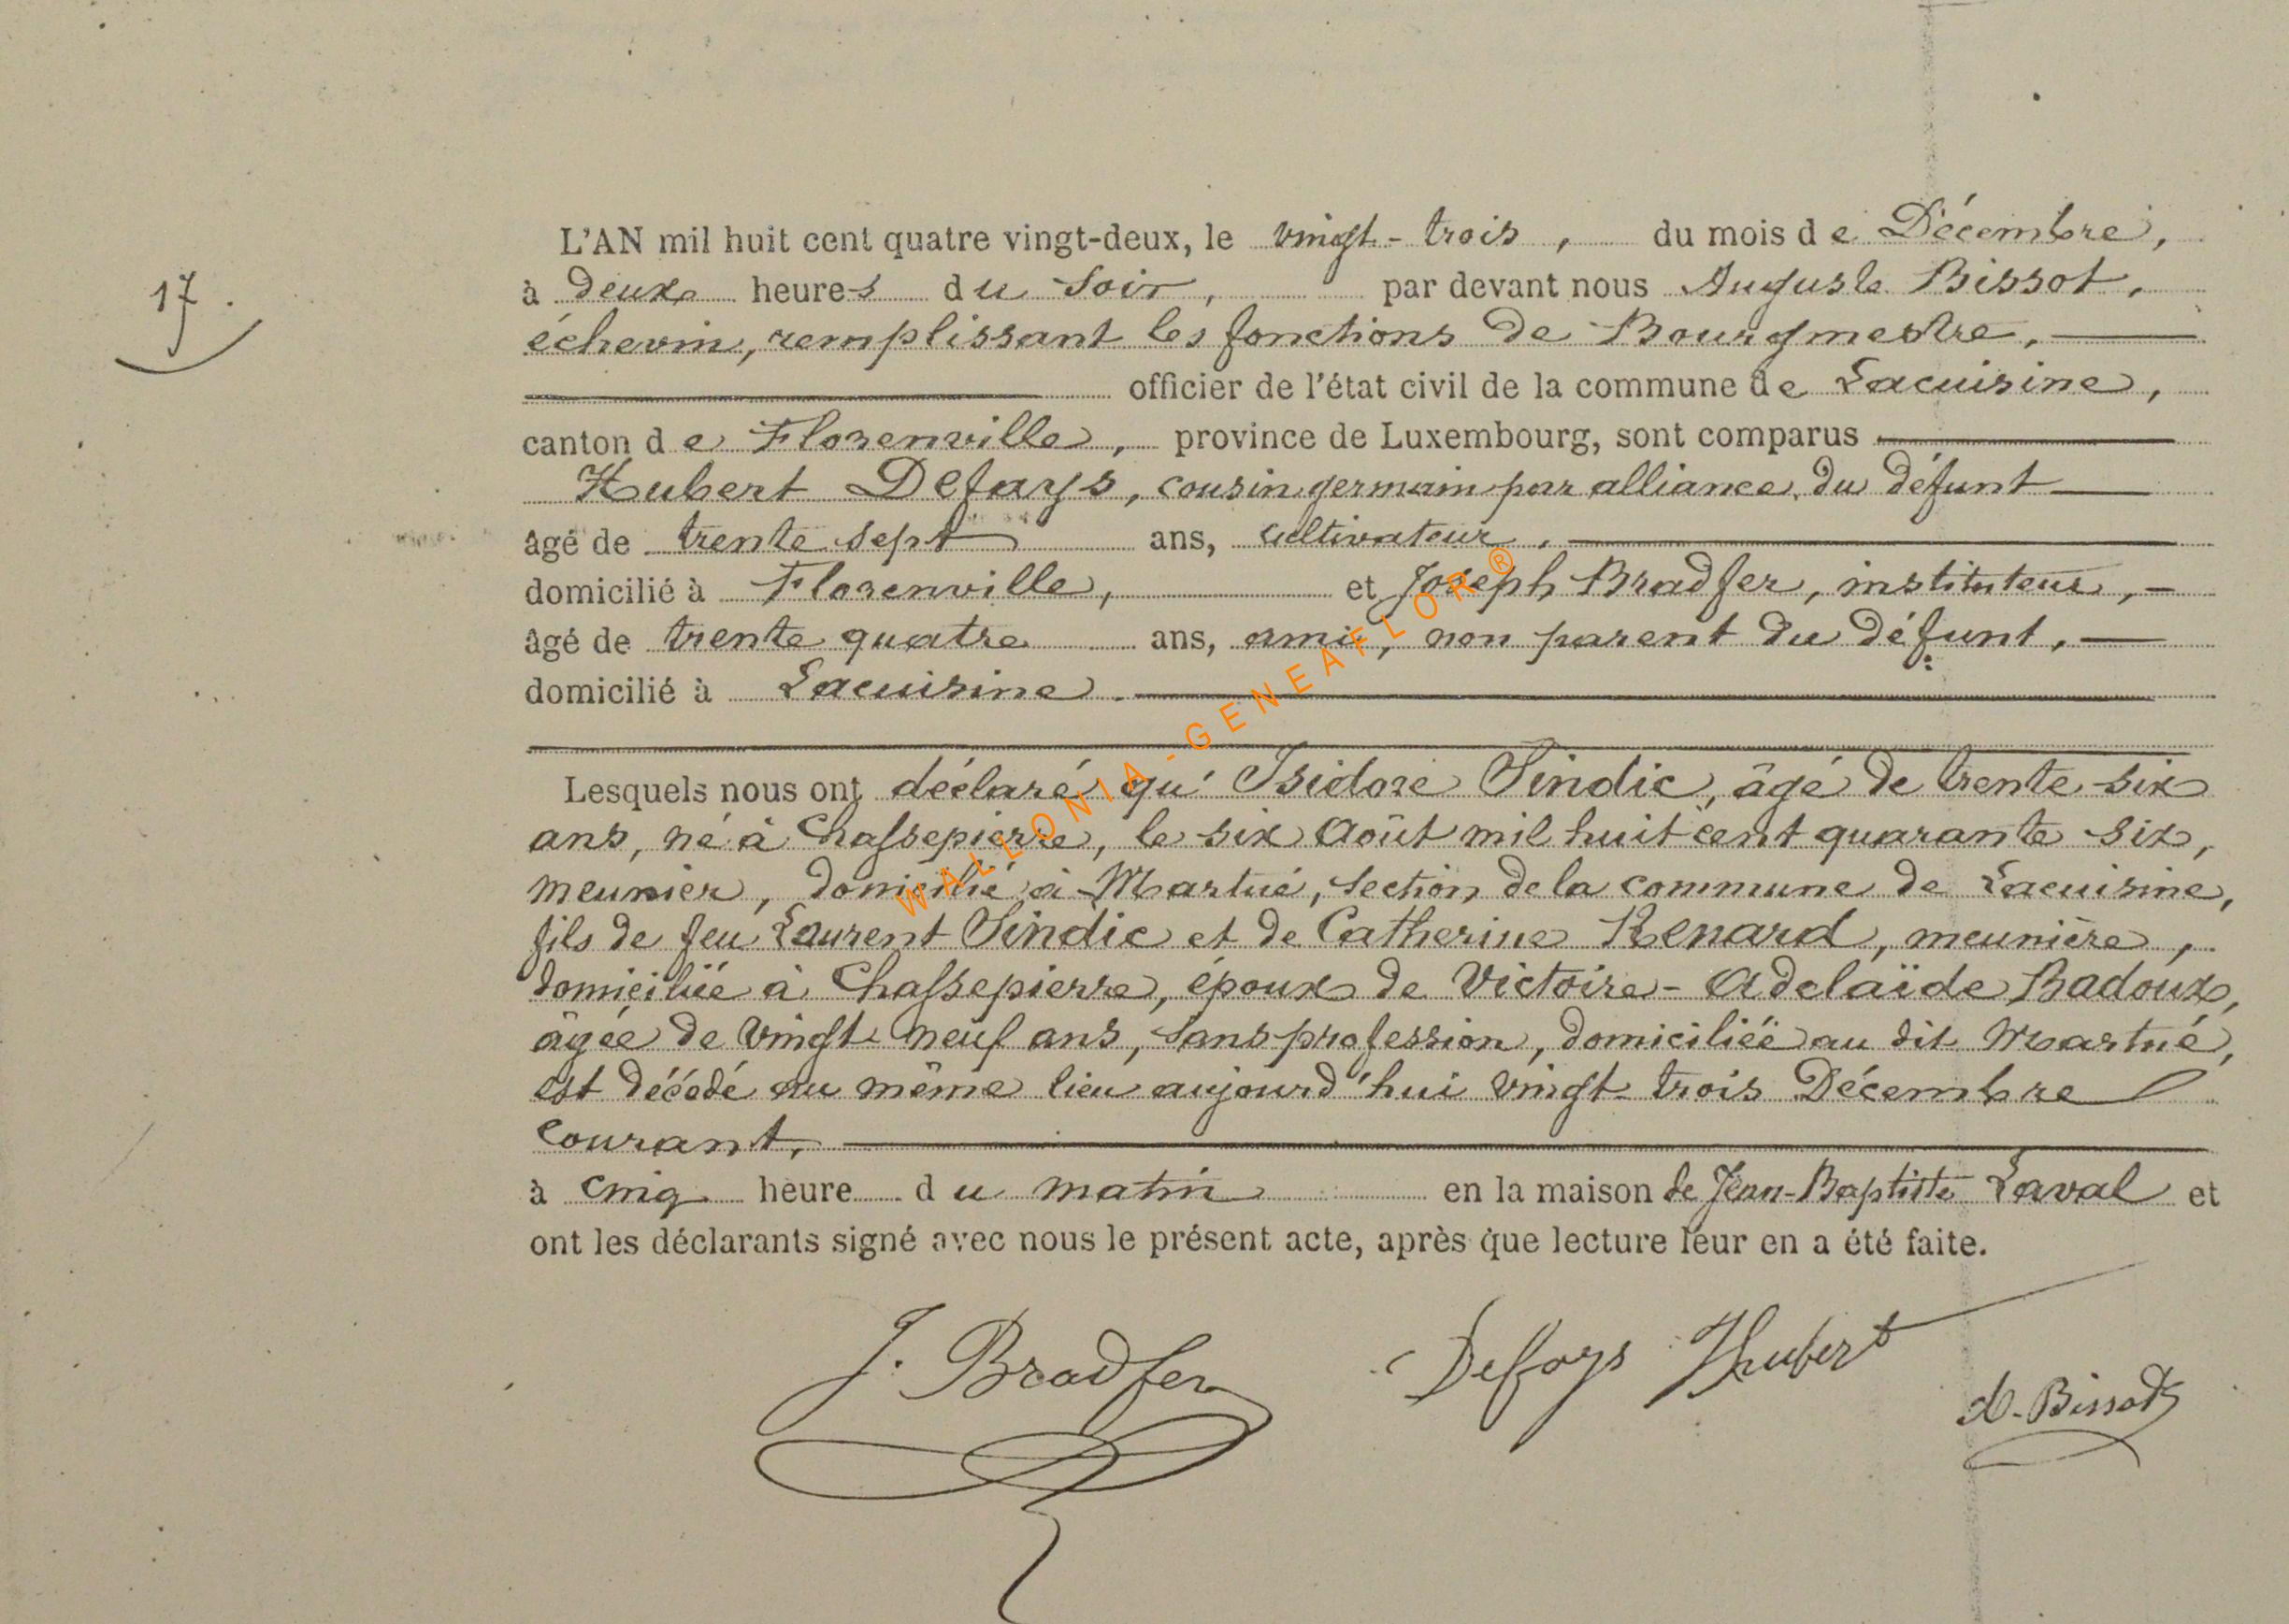 17.
L'AN mil huit cent quatre vingt-deux, le vingt-trois, du mois de Décembre,
à deux heures du soir, par devant nous Auguste Bissot,
échevin, remplissant les fonctions de Bourgmestre,
officier de l'état civil de la commune de Lacuisine,
canton de Florenville, province de Luxembourg, sont comparus
Hubert Defays, cousin germain par alliance du défunt
âgé de trente sept ans, cultivateur,
domicilié à Florenville, et Joseph Bradfer, instituteur,
âgé de trente quatre ans, ami, non parent du défunt,
domicilié à Lacuisine.
Lesquels nous ont déclaré qu'Isidore Sindic, âgé de trente-six
ans, né à Chassepierre, le six Août mil huit cent quarante six,
meunier, domicilié à Martué, section de la commune de Lacuisine,
fils de feu Laurent Sindic et de Catherine Renard, meunière,
domiciliée à Chassepierre, époux de Victoire-Adelaïde Badoux,
âgée de vingt neuf ans, sans profession, domiciliée au dit Martué,
est décédé au même lieu aujourd'hui vingt-trois Décembre
courant,
à cinq heure du matin en la maison de Jean-Baptiste Laval et
ont les déclarants signé avec nous le présent acte, après que lecture leur en a été faite.
J. Bradfer Defays Hubert A. Bissot
WALLONIA-GENEAFLOR®